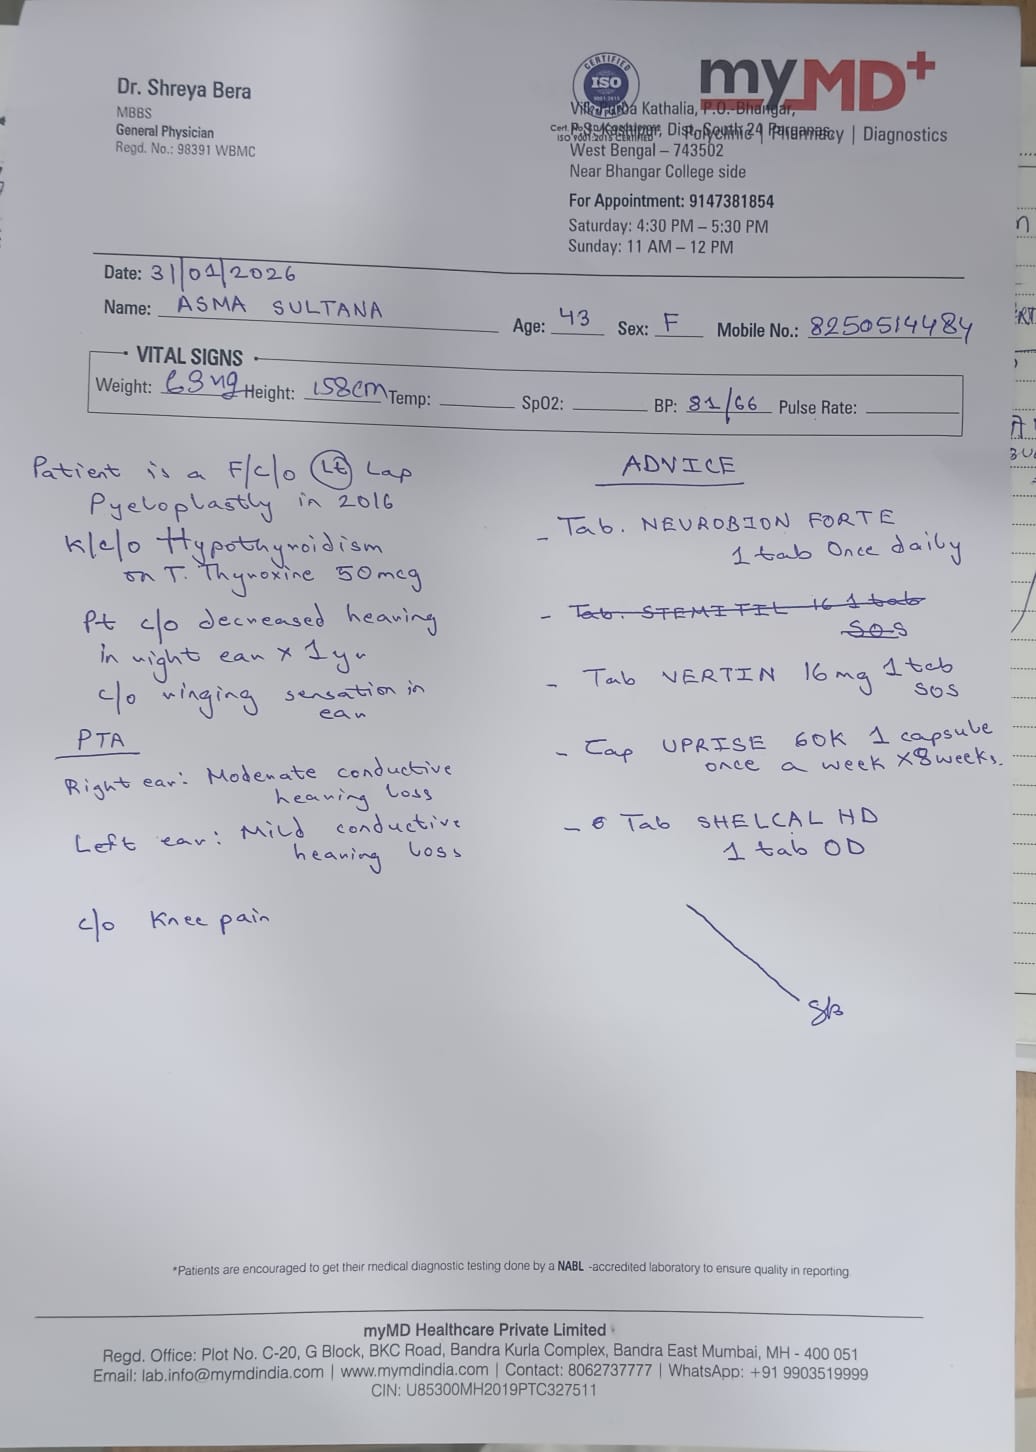 Dr. Shreya Bera
MBBS
General Physician
Regd. No.: 98391 WBMC
CERTIFIED
ISO
myMD+
Polyclinic | Pharmacy | Diagnostics
Kathalia, P.O.-Bhangar,
P.S.-Kashipur, Dist.-South 24 Parganas,
West Bengal – 743502
Near Bhangar College side
For Appointment: 9147381854
Saturday: 4:30 PM – 5:30 PM
Sunday: 11 AM – 12 PM
Date: 31/01/2026
Name: ASMA SULTANA
Age: 43 Sex: F Mobile No.: 8250514484
VITAL SIGNS
Weight: 63 kg Height: 158cm Temp: SpO2: BP: 81/66 Pulse Rate:
Patient is a F/c/o Lt Lap
Pyeloplastly in 2016
K/c/o Hypothyroidism
on T. Thyroxine 50mcg
Pt c/o decreased hearing
in right ear x 1yr
c/o ringing sensation in
ear
PTA
Right ear: Moderate conductive
hearing loss
Left ear: Mild conductive
hearing loss
c/o Knee pain
ADVICE
- Tab. NEUROBION FORTE
1 tab Once daily
- Tab. STEMITIL 16 1 tab
SOS
- Tab VERTIN 16mg 1 tab
SOS
- Cap UPRISE 60K 1 capsule
once a week x8weeks.
- Tab SHELCAL HD
1 tab OD
SB
*Patients are encouraged to get their medical diagnostic testing done by a NABL -accredited laboratory to ensure quality in reporting
myMD Healthcare Private Limited
Regd. Office: Plot No. C-20, G Block, BKC Road, Bandra Kurla Complex, Bandra East Mumbai, MH - 400 051
Email: lab.info@mymdindia.com | www.mymdindia.com | Contact: 8062737777 | WhatsApp: +91 9903519999
CIN: U85300MH2019PTC327511